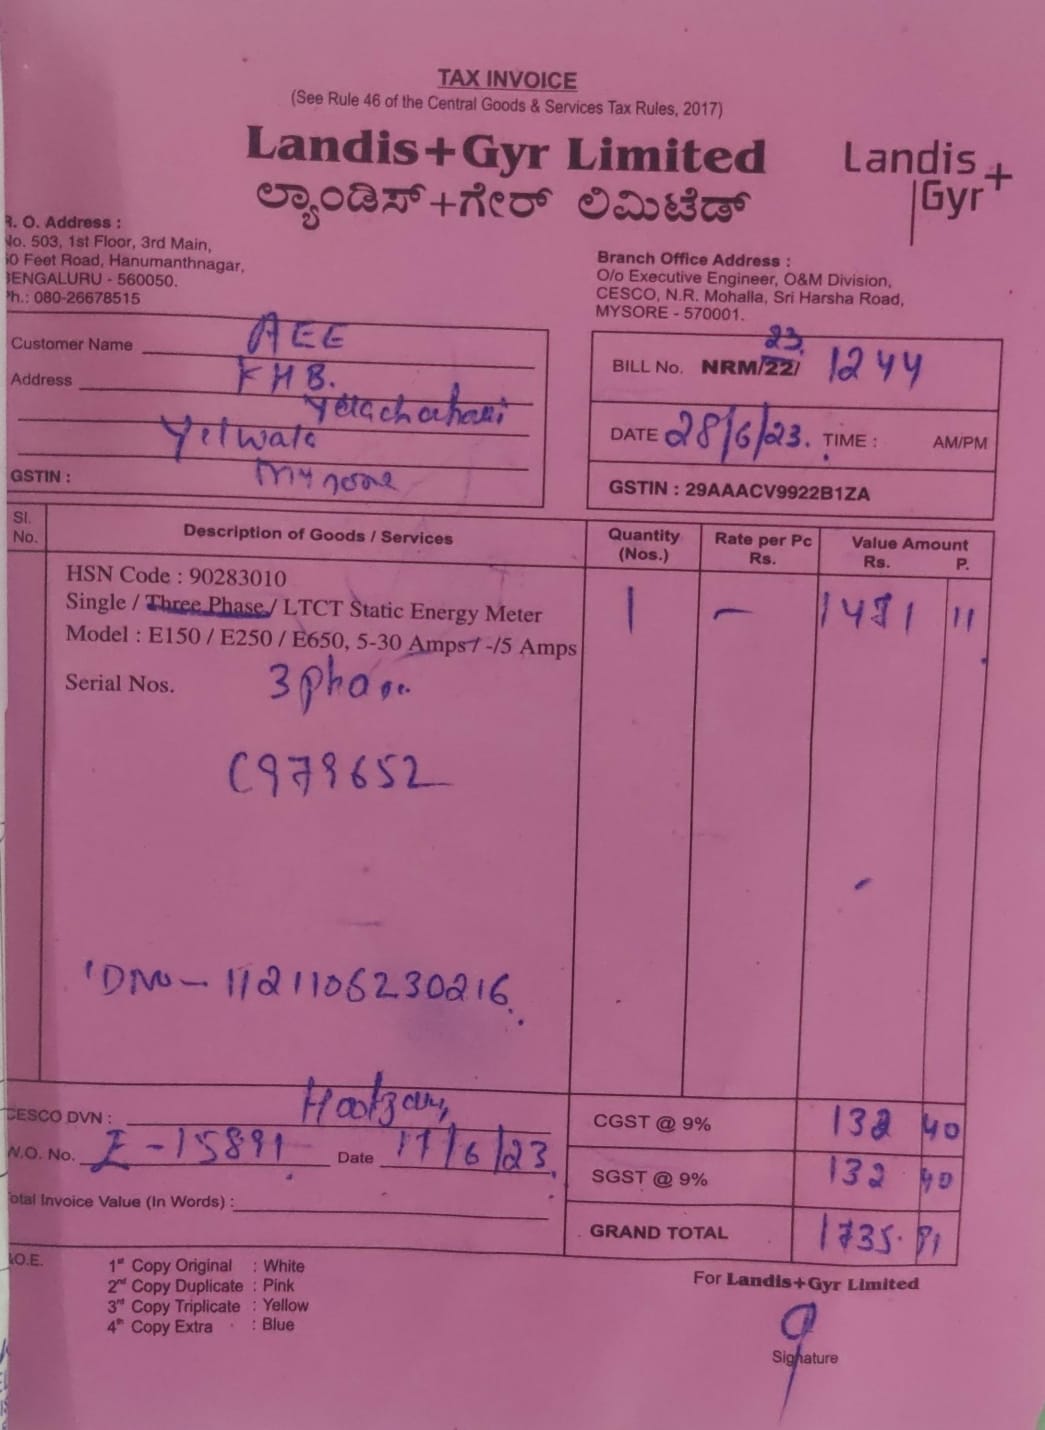 TAX INVOICE
(See Rule 46 of the Central Goods & Services Tax Rules, 2017)
Landis+Gyr Limited
ಲ್ಯಾಂಡಿಸ್+ಗೇರ್ ಲಿಮಿಟೆಡ್
Landis+
Gyr
R. O. Address :
No. 503, 1st Floor, 3rd Main,
50 Feet Road, Hanumanthnagar,
BENGALURU - 560050.
Ph.: 080-26678515
Branch Office Address :
O/o Executive Engineer, O&M Division,
CESCO, N.R. Mohalla, Sri Harsha Road,
MYSORE - 570001.
Customer Name AEE
Address KHB.
Yelwala
GSTIN : Mysore
23
BILL No. NRM/22/ 1244
DATE 28/6/23. TIME : AM/PM
GSTIN : 29AAACV9922B1ZA
Sl. No. Description of Goods / Services Quantity (Nos.) Rate per Pc Rs. Value Amount Rs. P.
HSN Code : 90283010
Single / Three Phase / LTCT Static Energy Meter 1 - 1471 11
Model : E150 / E250 / E650, 5-30 Amps / -/5 Amps
Serial Nos. 3 phase
C979652
IDNo - 1121106230216
CESCO DVN :
W.O. No. I-15891 Date 17/6/23
Total Invoice Value (In Words) :
CGST @ 9% 132 40
SGST @ 9% 132 40
GRAND TOTAL 1735. 91
O.E.
1st Copy Original : White
2nd Copy Duplicate : Pink
3rd Copy Triplicate : Yellow
4th Copy Extra : Blue
For Landis+Gyr Limited
Signature